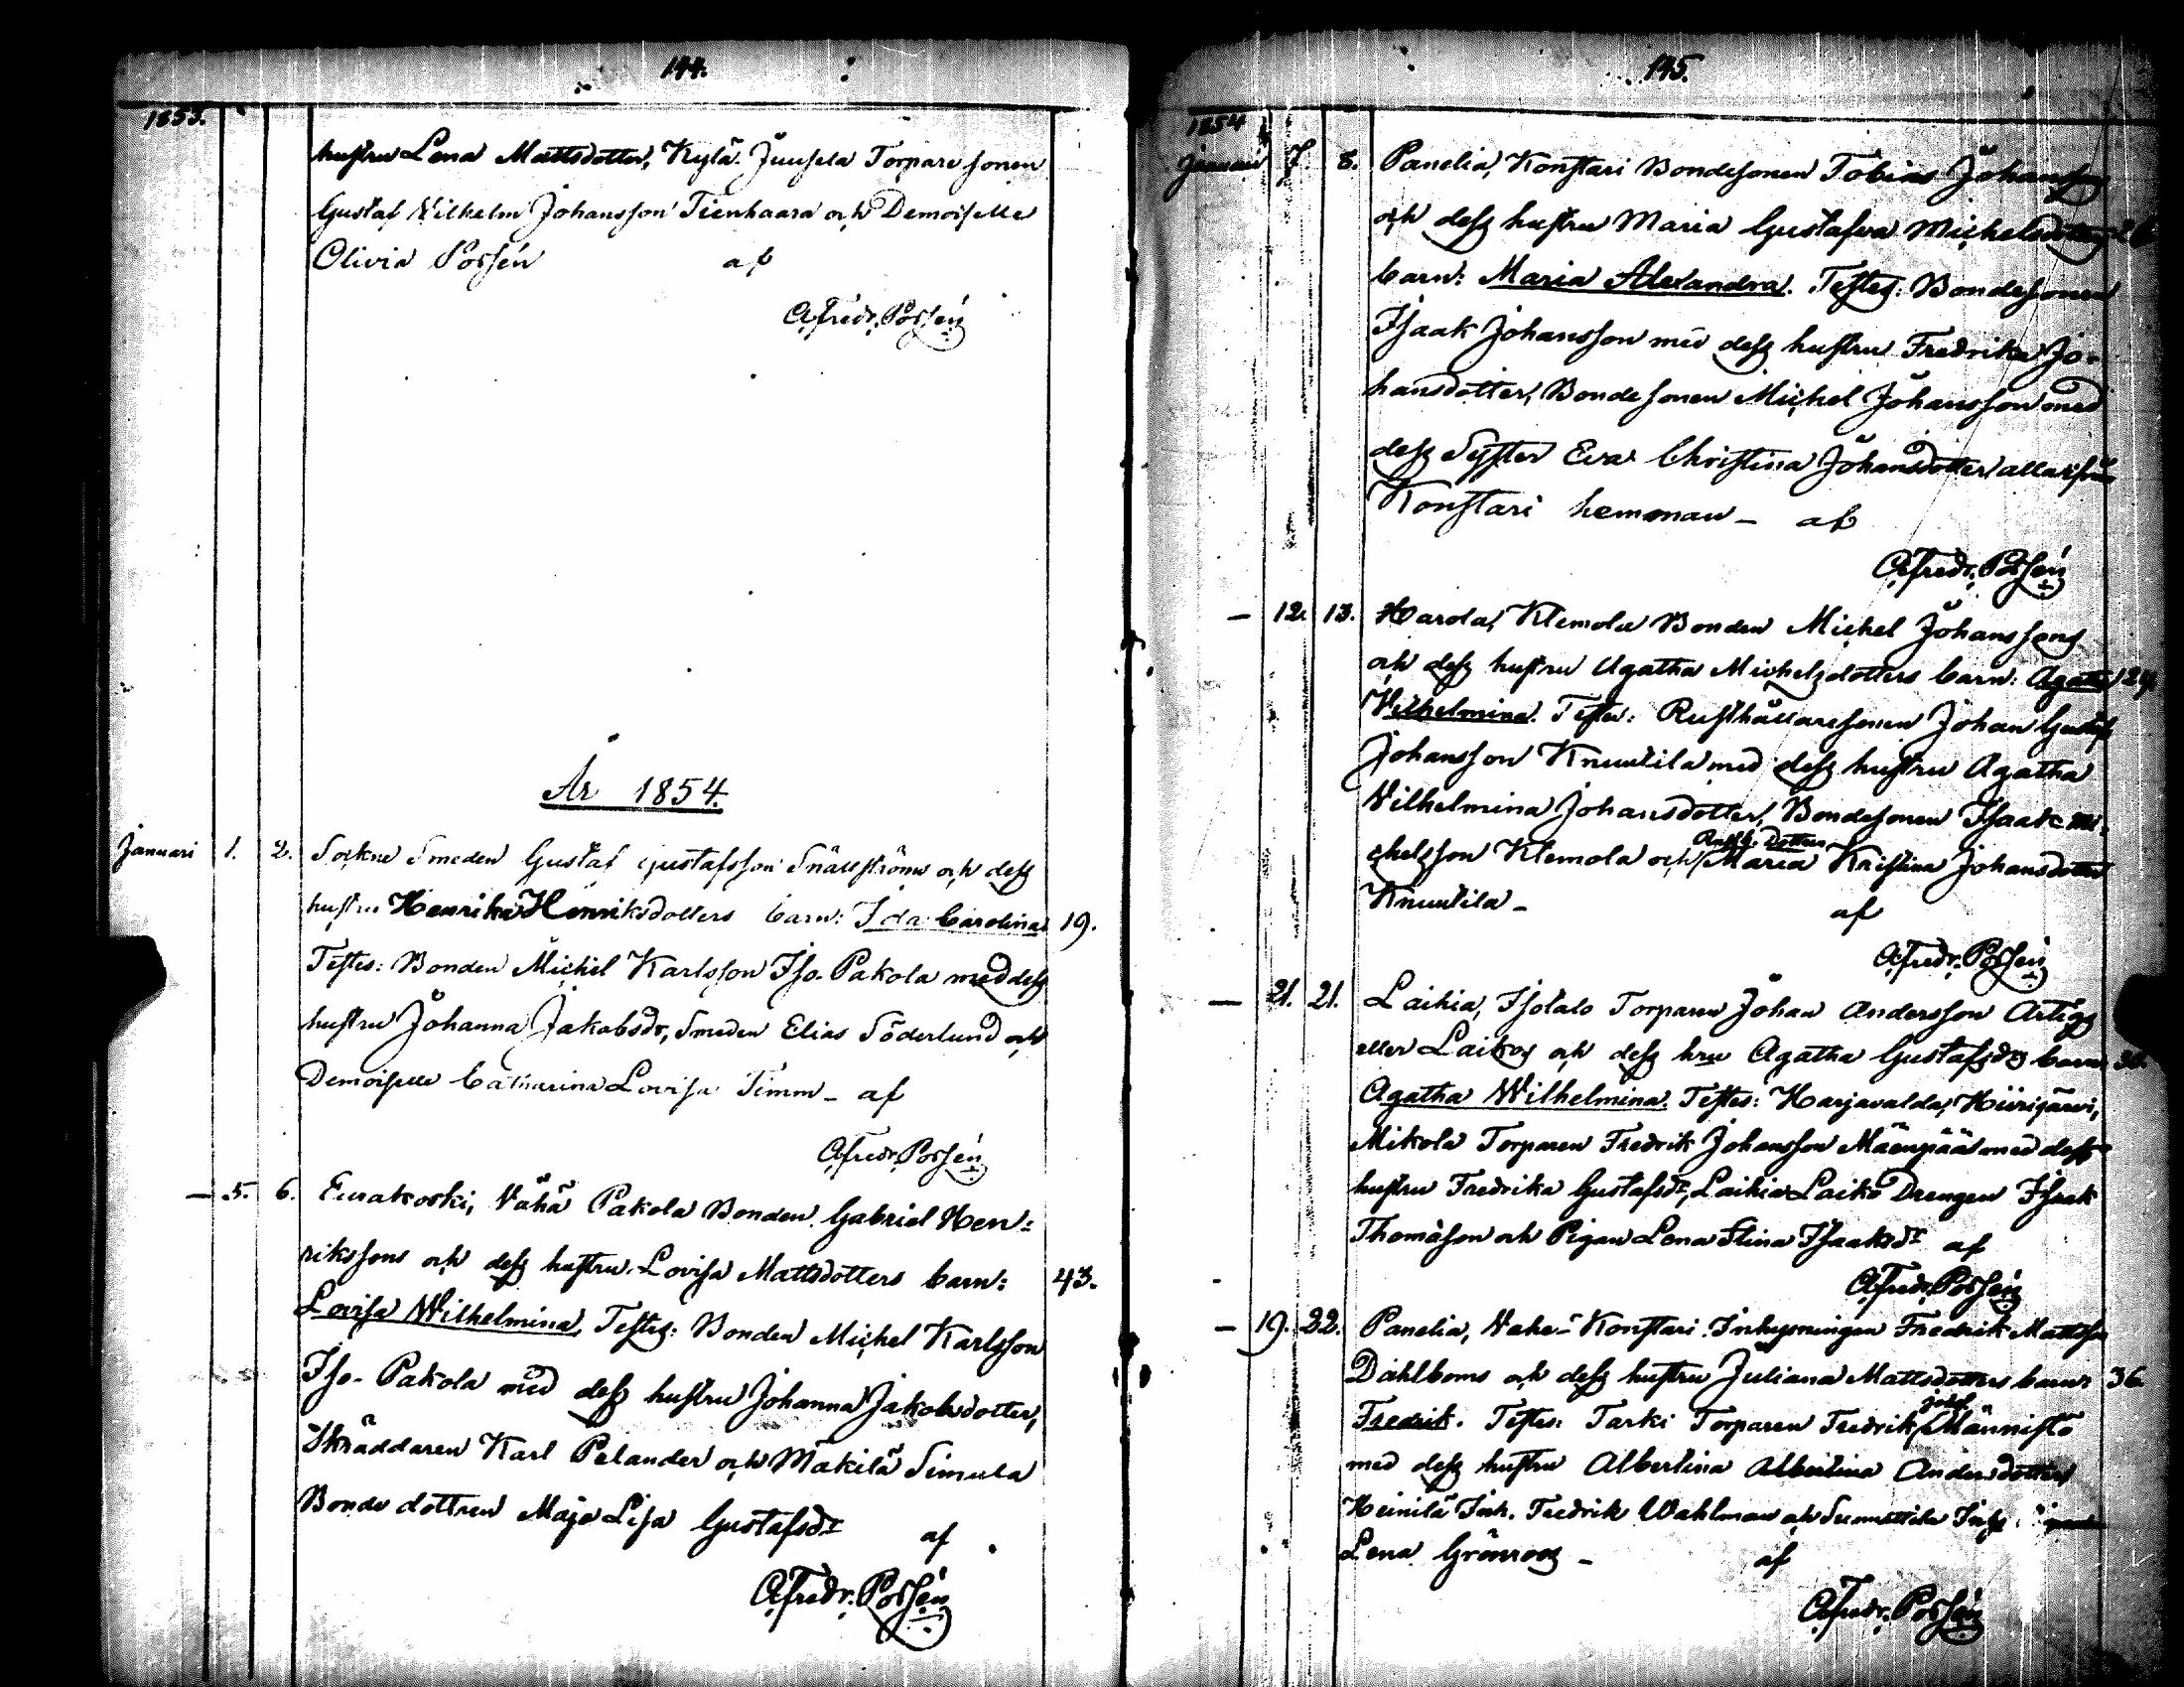 144.
1853.
hustru Lena Mattsdotter, Kylä Juusela Torparesonen
Gustaf Wilhelm Johansson Tienhaara och Demoiselle
Olivia Possén af
Afredr. Possén
År 1854.
Januari 1. 2. Sockne Smeden Gustaf Gustafsson Snällströms och dess
hustru Henrika Henriksdotters barn: Ida Carolina 19.
Testes: Bonden Michel Karlsson Iso-Pakola med dess
hustru Johanna Jakobsdr, Smeden Elias Söderlund och
Demoiselle Catharina Lovisa Timm _ af
Afredr. Possén
— 5. 6. Eurakoski, Vähä Pakola Bonden Gabriel Hen=
rikssons och dess hustru Lovisa Mattsdotters barn: 43.
Lovisa Wilhelmina, Testes: Bonden Michel Karlsson
Iso-Pakola med dess hustru Johanna Jakobsdotter,
Skräddaren Karl Pelander och Mäkilä Simula
Bonde dottren Maja Lisa Gustafsdr af
Afredr. Possén
145.
1854
Januari 7. 8. Panelia, Konstari Bondesonen Tobias Johanssons
och dess hustru Maria Gustafva Michelsdotters 26
barn: Maria Alexandra. Testes: Bondesonen
Isaak Johansson med dess hustru Fredrika Jo-
hansdotter, Bondesonen Michel Johansson med
dess Syster Eva Christina Johansdotter allas från
Konstari hemman _ af
Afredr. Possén
— 12. 13. Harola, Klemola Bonden Michel Johanssons
och dess hustru Agatha Michelsdotters barn: Agatha 24.
Wilhelmina. Testes: Rusthållaresonen Johan Gustaf
Johansson Knuutila med dess hustru Agatha
Wilhelmina Johansdotter, Bondesonen Isaak Mi-
chelsson Klemola och Rusth. Dottren Maria Kristina Johansdotter
Knuutila _ af
Afredr. Possén
— 21. 21. Laihia, Isotalo Torparen Johan Andersson Artigs
eller Laikos och dess hru Agatha Gustafsdrs barn 36.
Agatha Wilhelmina. Testes: Harjavalda, Hiirijärvi,
Mikola Torparen Fredrik Johansson Mäenpää med dess
hustru Fredrika Gustafsdr, Laihia Laiko Drengen Isaak
Thomasson och Pigan Lena Stina Isaaksdr af
Afredr. Possén
— 19. 22. Panelia, Vähe-Konstari Inhysningen Fredrik Mattsson
Dahlboms och dess hustru Juliana Mattsdotters barn: 36
Fredrik. Testes: Tarki Torparen Fredrik Josef Männistö
med dess hustru Albertina Albertina Andersdotter,
Heinilä Inh. Fredrik Wahlman och Inhs.
Lena Grönroos _ af
Afredr. Possén